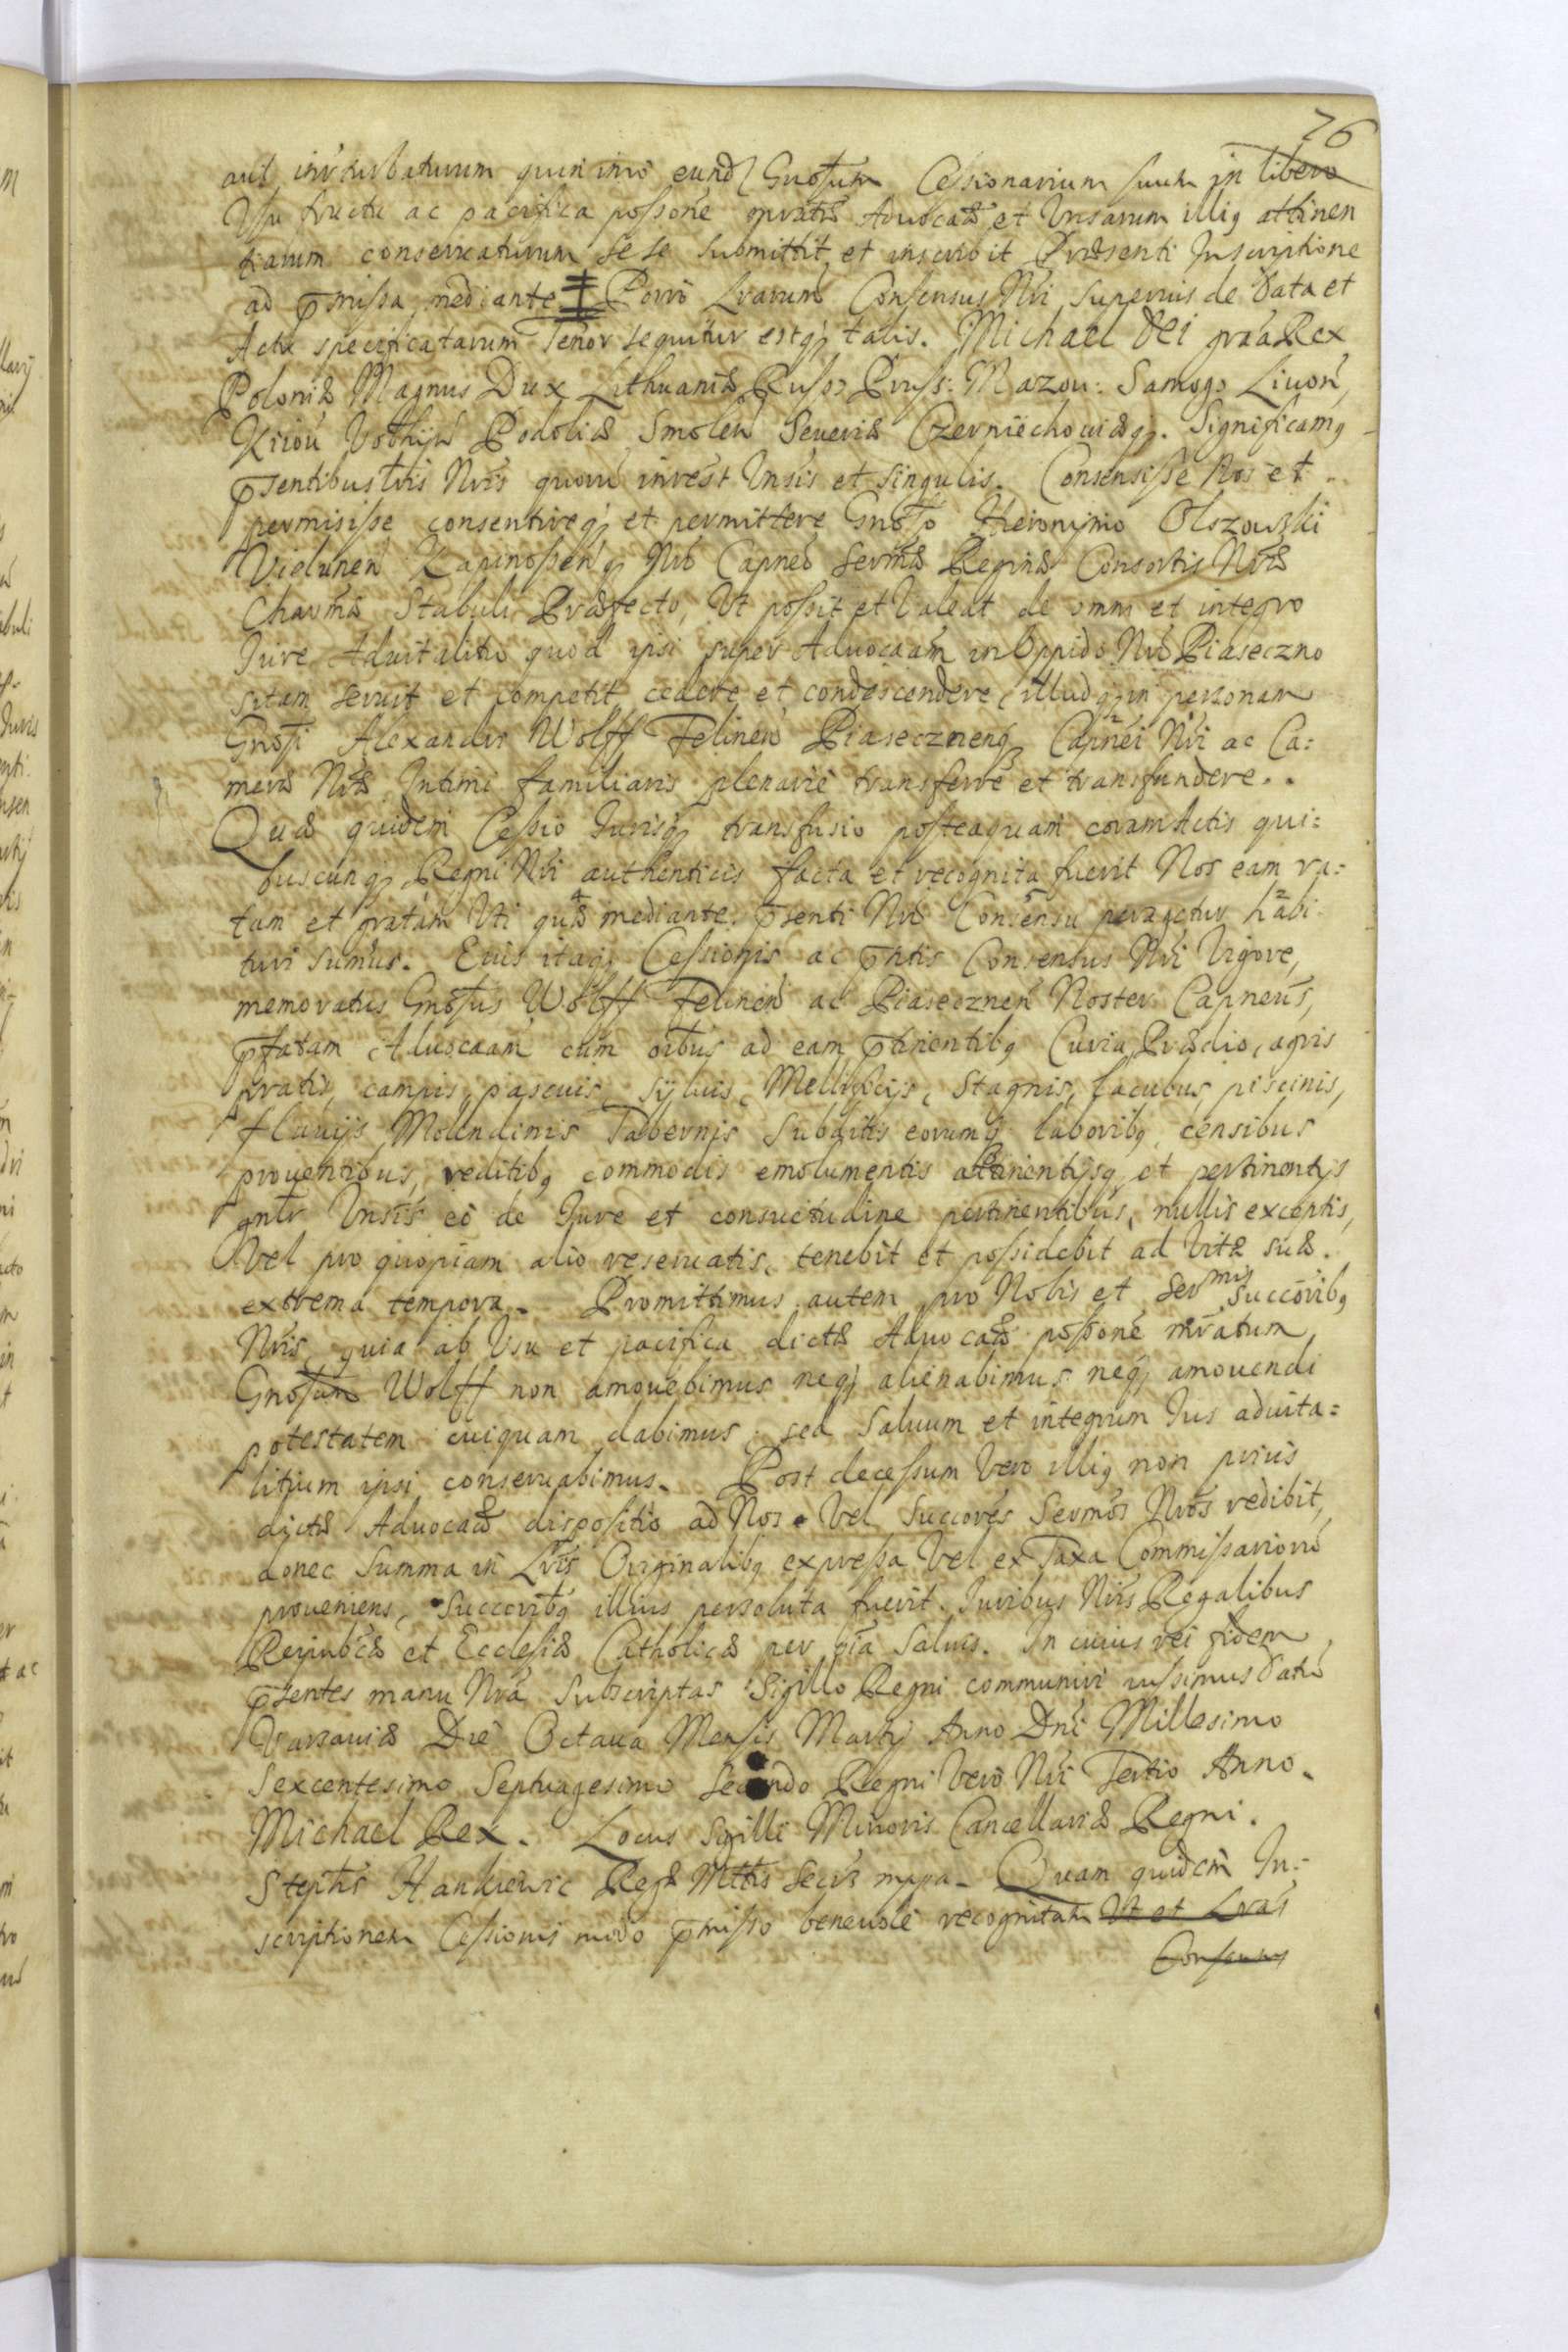 76
aut inturbaturum quin imo eund Gnosum Cessionarium suum in libero
Usu fructu ac pacifica possone pnratæ Aduocatæ et Unsarum illiq attinen
tiarum conseruaturum se se submittit et inscribit Præsenti Inscriptione
ad pmissa mediante Porro Lrarum Consensus Nri superius de data et
Actu specificatarum Tenor sequitur estq talis. Michael Dei gra Rex
Poloniæ Magnus Dux Lithuaniæ Russo Pruss: Mazou: Samogo Liuon,
Kiiou Volhijn Podoliæ Smolen Seueriæ Czerniechouiæq. Significamq
psentibus Lris Nris quorum intrest Unsis et singulis. Consensisse Nos et
permisisse consentireq et permittere Gnoso Hieronymo Olszowski
Vielunen Kapinossenq Nro Capneo Sermæ Reginæ Consortis Nræ
Charmæ Stabuli Præfecto, Ut possit et Valeat de omni et integro
Jure Aduitalitio quod ipsi super Aduocaam in Oppido Nro Piaseczno
sitam seruit et competit cedere et condescendere illudq in personam
Gnosi Alexandri Wolff Felinen Piasecznenq Capnei Nri ac Ca:
meræ Nræ Intimi familiaris plenarie transferre et transfundere.
Quæ quidem Cessio Jurisq transfusio posteaquam coram Actis qui:
buscunq Regni Nri authenticis facta et recognita fuerit Nos eam ra:
tam et gratam Uti quæ mediante psenti Nro Consensu peragetur habi
turi sumus. Euis itaq Cessionis ac pntis Consensus Nri Vigore,
memoratus Gnosus Wolff Felinen ac Piasecznen Noster Capneus,
pfatam Aduocaam cum oibus ad eam ptinentibq Curia Prædio, agris
pratis, campis, pascuis, syluis, Mellificijs, Stagnis, lacubus, piscinis,
fluuijs Molendinis Tabernis Subditis eorumq laboribq censibus
prouentibus, reditibq commodis emolumentis attinentijsq et pertinentijs
gnlr Unsis eo de Jure et consuetudine pertinentibus, nullis exceptis,
Vel pro quopiam alio reseruatis, tenebit et possidebit ad Vitæ suæ
extrema tempora. Promittimus autem pro Nobis et Sermis Succoribq
Nris, quia ab Usu et pacifica dictæ Aduocaæ possone mratum
Gnosum Wolff non amouebimus neq alienabimus neq amouendi
potestatem cuiquam dabimus, sed Saluum et integrum Jus aduita=
litium ipsi conseruabimus. Post decessum Vero illiq non prius
dictæ Aduocaæ dispositio ad Nos Vel Succores Sermos Nros redibit,
donec Summa in Lris Originalibq expressa Vel ex Taxa Commissariorum
proueniens, Succoribq illius persoluta fuerit. Juribus Nris Regalibus
Reipubcæ et Ecclesiæ Catholicæ per oia Saluis. In cuius rei fidem
psentes manu Nra Subscriptas Sigillo Regni communiri iussimus Datum
Varsauiæ Die Octaua Mensis Martij Anno Dni Millesimo
Sexcentesimo Septuagesimo Secundo Regni Vero Nri Tertio Anno.
Michael Rex. Locus Sigilli Minoris Cancellariæ Regni.
Stephs Hankiewic Regæ Mttis Secrs mppa. Quam quidem In-
scriptionem Cessionis modo pmisso beneuole recognitam Ut et Lras
Consensus